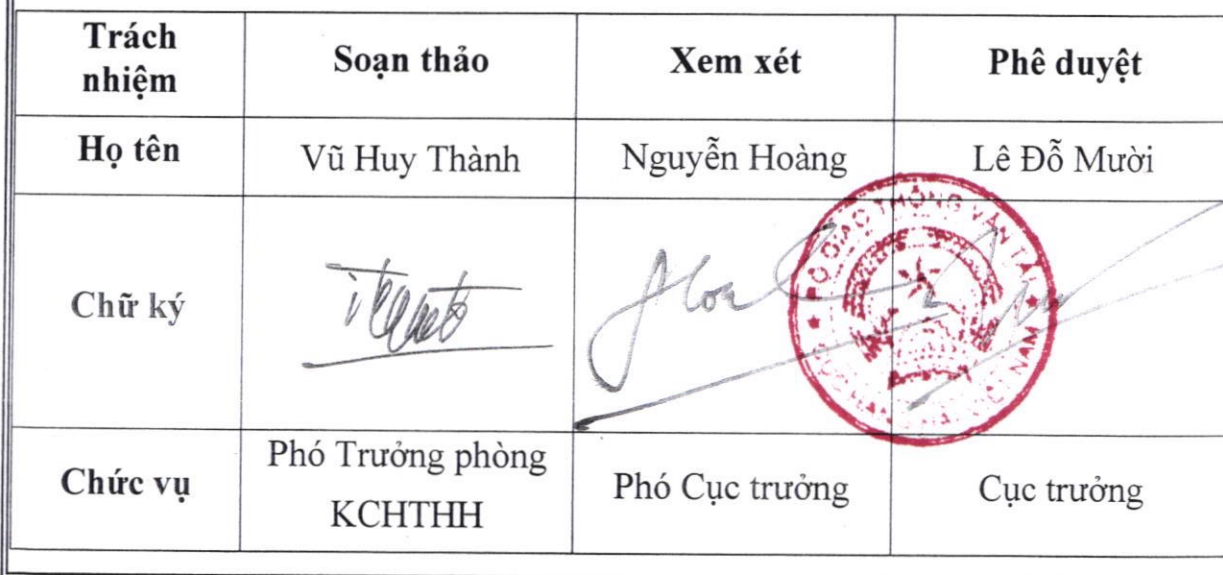 Trách
nhiệm
Soạn thảo
Xem xét
Phê duyệt
Họ tên
Vũ Huy Thành
Nguyễn Hoàng
Lê Đỗ Mười
Chữ ký
BỘ GIAO THÔNG VẬN TẢI
NAM
Chức vụ
Phó Trưởng phòng
KCHTHH
Phó Cục trưởng
Cục trưởng